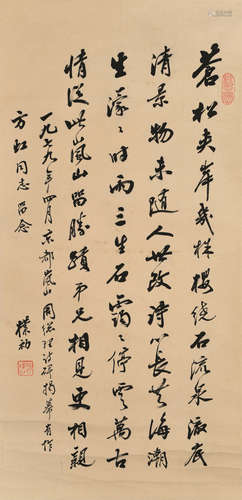 蒼松夾岸幾株櫻繞石流泉澈底
清景物未隨人世改詩心長共海潮
生濛〻時雨三生石靄〻停雲萬古
情從此嵐山留勝蹟弟兄相見更相親
一九七九年四月京都嵐山周總理詩碑揭幕有作
方同志留念
樸初